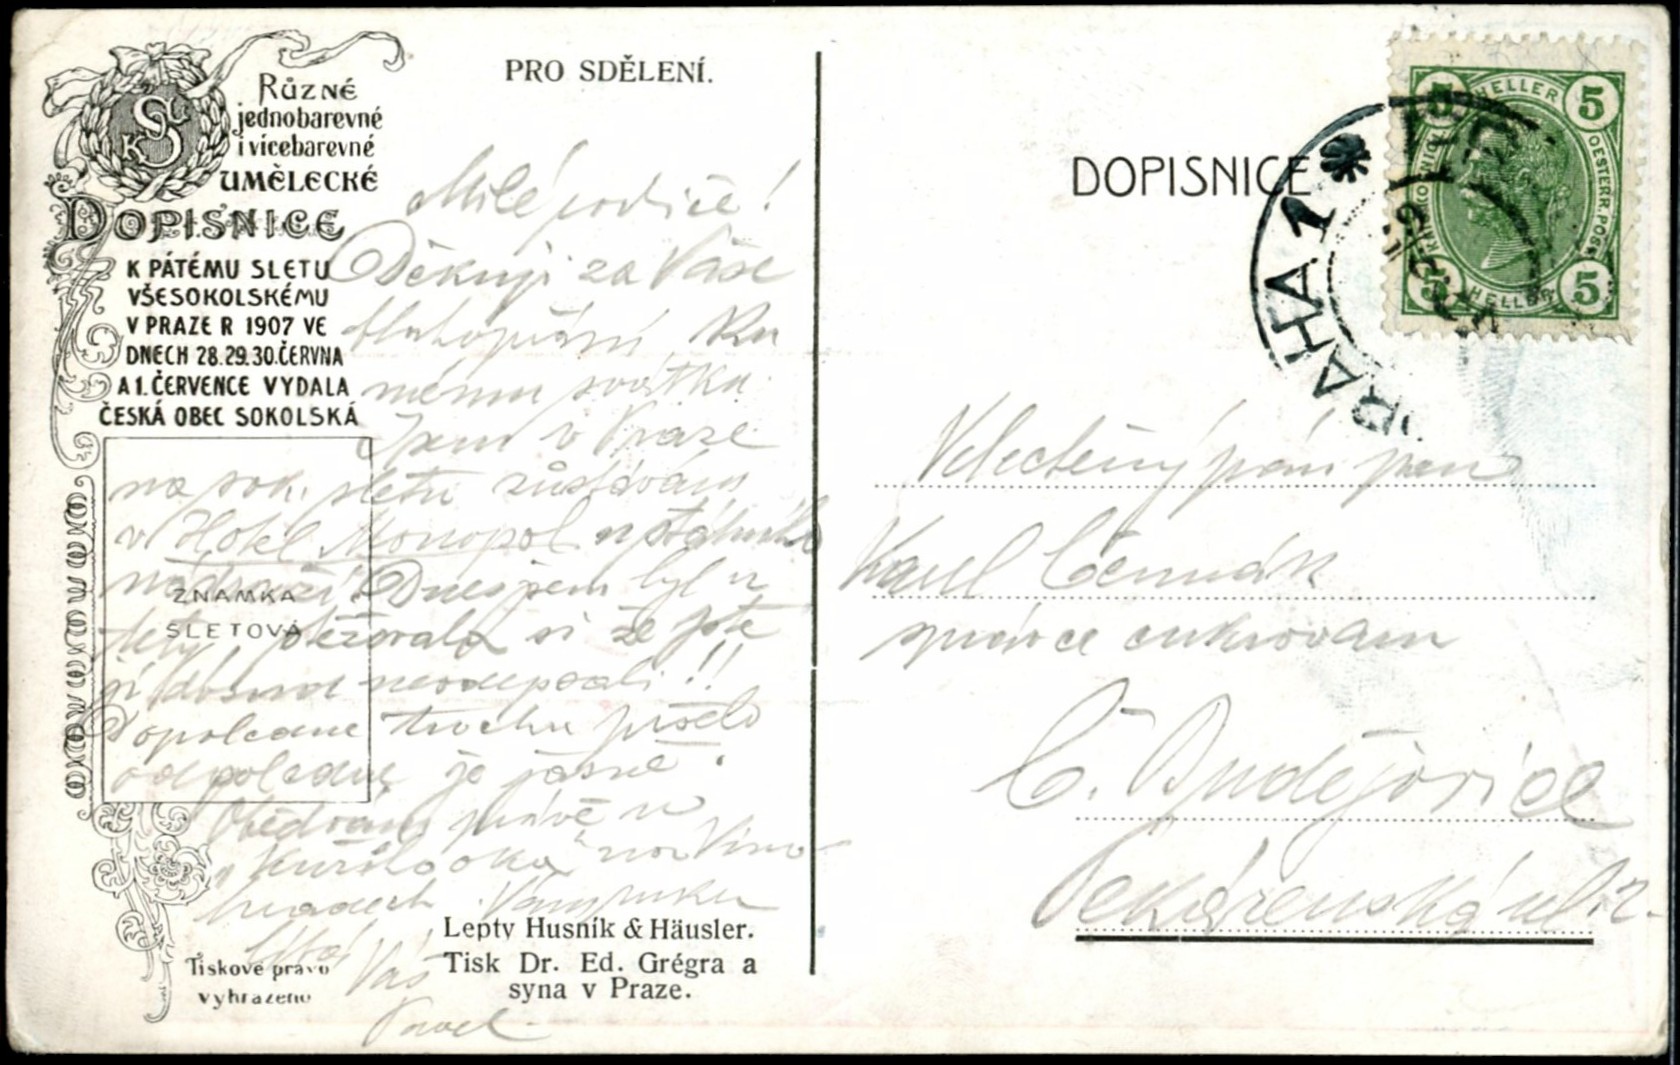 Různé
jednobarevné
i vícebarevné
UMĚLECKÉ
DOPISNICE
K PÁTÉMU SLETU
VŠESOKOLSKÉMU
V PRAZE R 1907 VE
DNECH 28.29.30.ČERVNA
A 1. ČERVENCE VYDALA
ČESKÁ OBEC SOKOLSKÁ
ZNÁMKA
SLETOVÁ
Tiskové právo
vyhrazeno
PRO SDĚLENÍ.
Milé rodiče!
Děkuji za Vaše
blahopřání, ku
mému svátku.
Jsem v Praze
na sok. sletu zůstávám
v Hotel Monopol u státního
nádraží. Dnes jsem byl u
tety, stěžovala si že jste
jí neodepsali!!
Dopoledne trochu pršelo
odpoledne je jasné.
Obědvám právě u
na Vino-
hradech
Líbá
Váš
Pavel
Lepty Husník & Häusler.
Tisk Dr. Ed. Grégra a
syna v Praze.
DOPISNICE
PRAHA 1
5 HELLER 5
5 HELLER 5
OESTERR. POST
Velectěný pán pan
Karel Čermák
správce cukrovaru
Č. Budějovice
Pekárenská ul. 2.